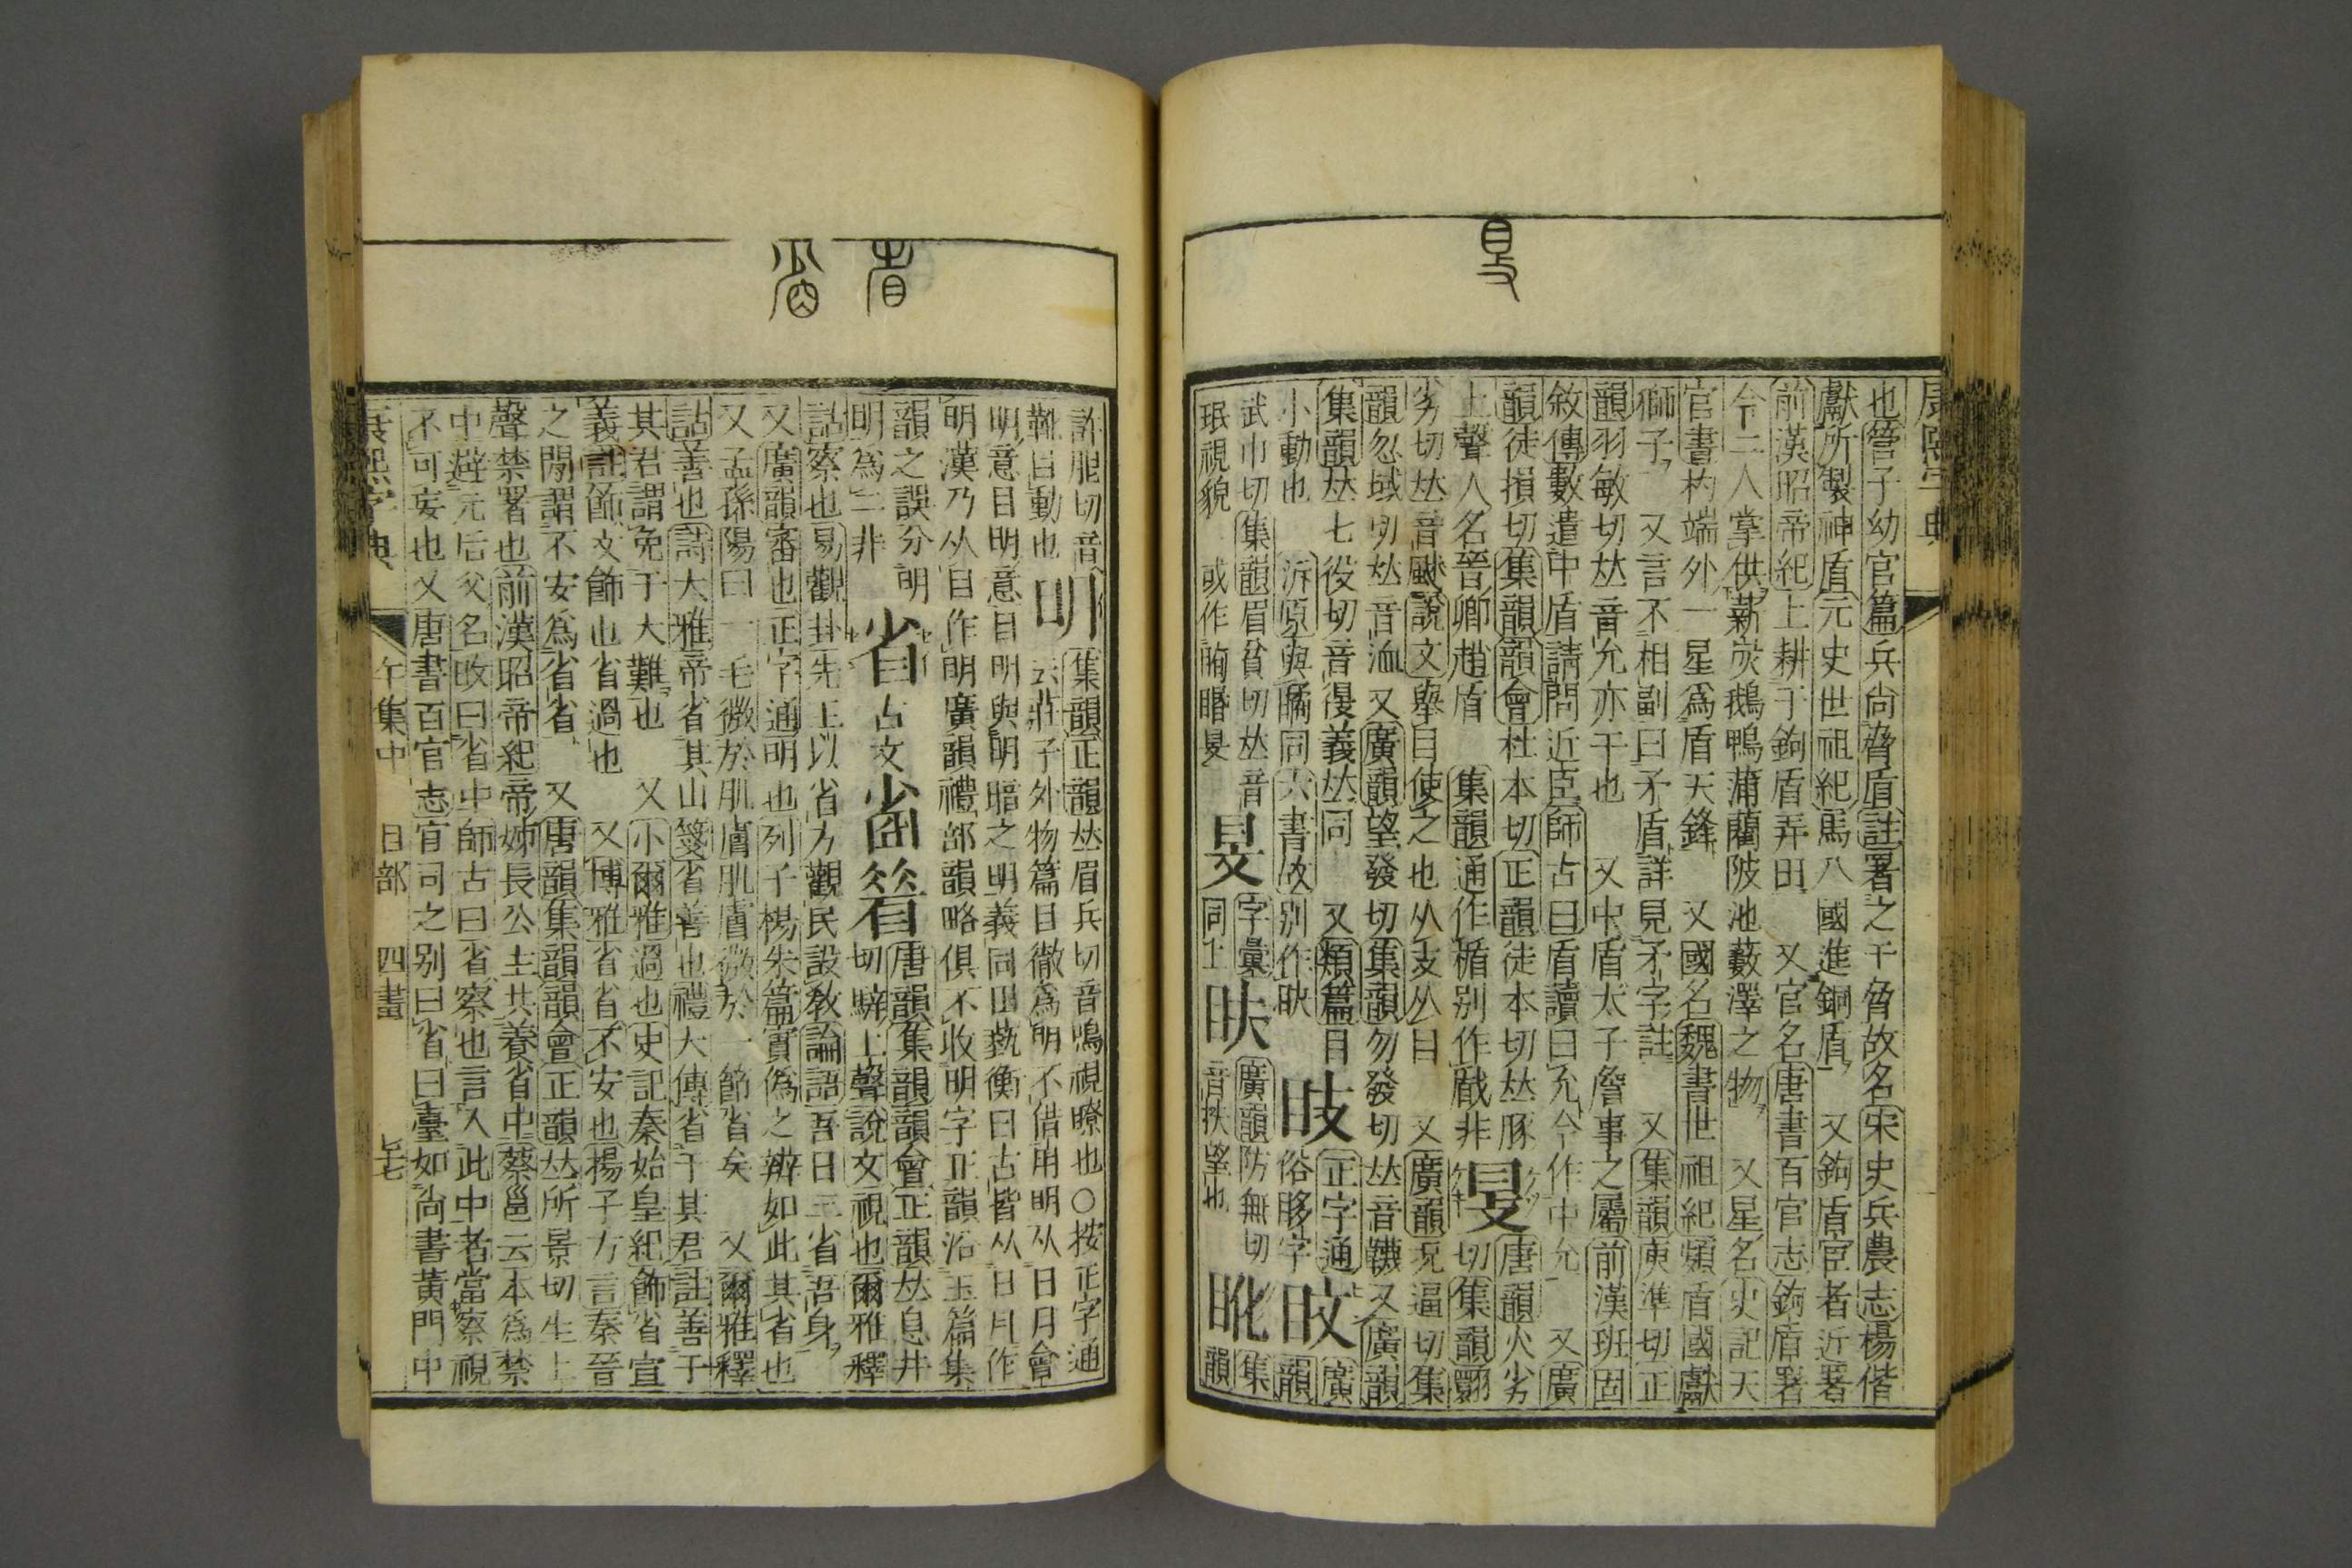 𥄎
康熙字典
也管子幼官篇兵尚脅盾註署之于脅故名宋史兵農志楊偕
獻所製神盾元史世祖紀馬八國進銅盾又鉤盾宦者近署
前漢昭帝紀上耕于鉤盾弄田又官名唐書百官志鉤盾署
令二人掌供薪炭鵝鴨蒲藺陂池藪澤之物又星名史記天
官書杓端外一星爲盾天鋒又國名魏書世祖紀頞盾國獻
獅子又言不相副曰矛盾詳見矛字註又集韻庾準切正
韻羽敏切𠀤音允亦干也又中盾太子詹事之屬前漢班固
敘傳數遣中盾請問近臣師古曰盾讀曰允今作中允又廣
韻徒損切集韻韻會杜本切正韻徒本切𠀤豚
上聲人名晉卿趙盾集韻通作楯别作瞂非
𥄎唐韻火劣切集韻翾
劣切𠀤音颰說文舉目使之也从攴从目又廣韻況逼切集
韻忽域切𠀤音洫又廣韻望發切集韻勿發切𠀤音韤又廣韻
集韻𠀤七役切音㑴義𠀤同又類篇目
小動也泝原與瞲同六書故别作眏
䀹正字通俗眵字
盿廣韻
武巾切集韻眉貧切𠀤音
珉視貌或作眗䁕旻
旻字彙同上
䀿廣韻防無切音扶望也
眦集韻
省
𥄢
許肥切音
靴目動也
明集韻正韻𠀤眉兵切音鳴視瞭也○按正字通
云莊子外物篇目徹爲明不借用明从日月會
明意目明意目明與明暗之明義同田蓺衡曰古皆从日月作
明漢乃从目作明廣韻禮部韻略俱不收明字正韻沿玉篇集
韻之誤分明
明爲二非
省古文𡮀𥮪唐韻集韻韻會正韻𠀤息井
切騂上聲說文視也爾雅釋
詁察也易觀卦先王以省方觀民設敎論語吾日三省吾身
又廣韻審也正字通明也列子楊朱篇實僞之辨如此其省也
又孟孫陽曰一毛微於肌膚肌膚微於一節省矣又爾雅釋
詁善也詩大雅帝省其山箋省善也禮大傳省于其君註善于
其君謂免于大難也又小爾雅過也史記秦始皇紀飾省宣
義註飾文飾也省過也又博雅省省不安也揚子方言秦晉
之閒謂不安爲省省又唐韻集韻韻會正韻𠀤所景切生上
聲禁署也前漢昭帝紀帝姊長公主共養省中蔡邕云本爲禁
中避元后父名改曰省中師古曰省察也言入此中者當察視
不可妄也又唐書百官志官司之别曰省曰臺如尚書黃門中
康熙字典 午集中 目部 四畫 七